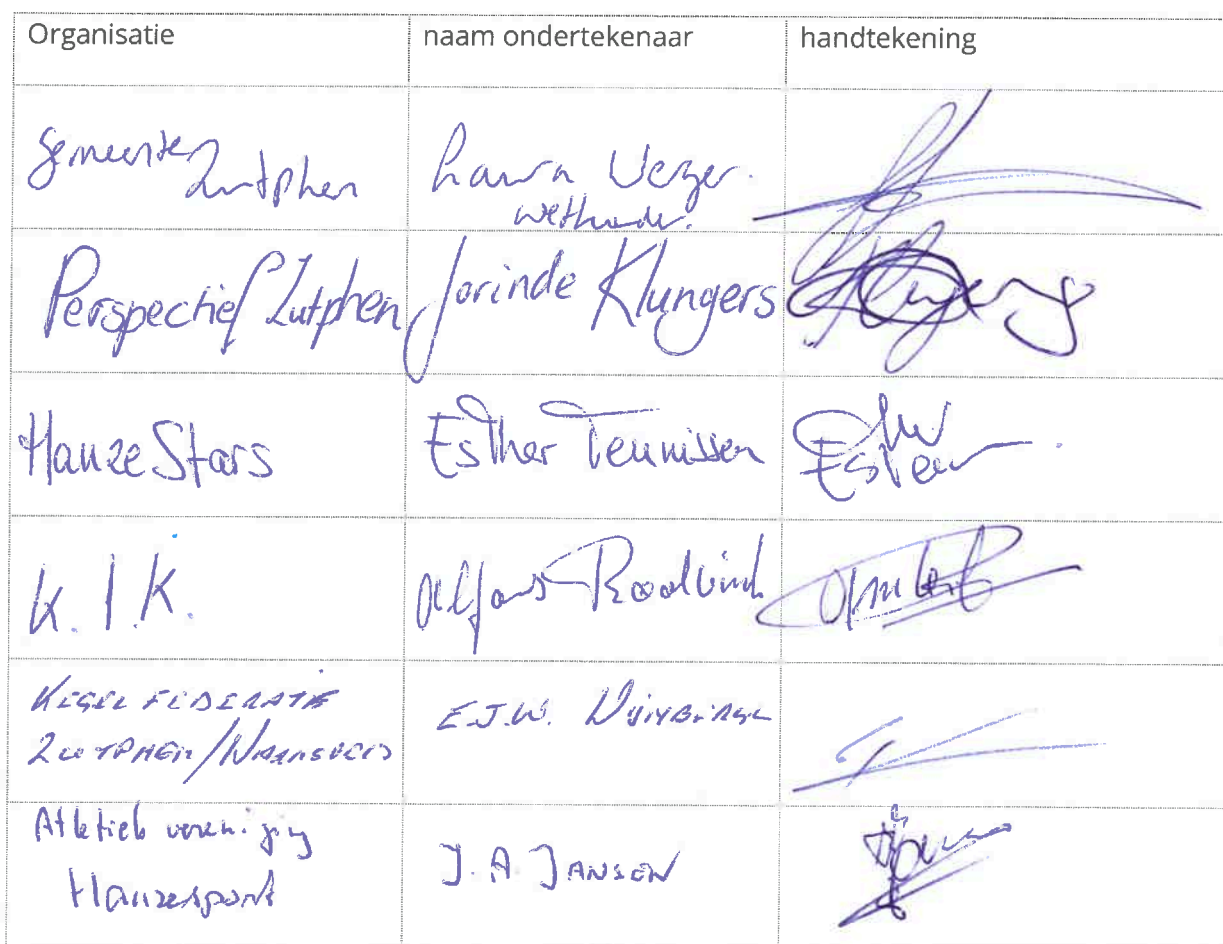 Organisatie naam ondertekenaar handtekening
gemeente Zutphen Laura Werger.
wethouder.
Perspectief Zutphen Jorinde Klungers
HanzeStars Esther Teunissen
K.I.K. Alfons Roodbink
KEGEL FEDERATIE
ZUTPHEN/WARNSVELD
E.J.W.
Atletiek vereniging
Hanzesport
J.A. JANSEN